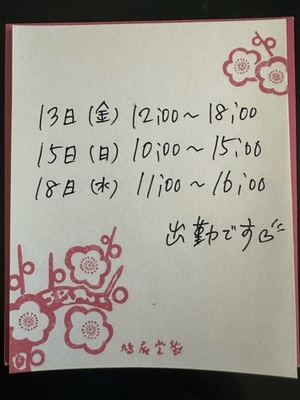 13日(金) 12:00〜18:00
15日(日) 10:00〜15:00
18日(水) 11:00〜16:00
出勤です
鳩居堂製